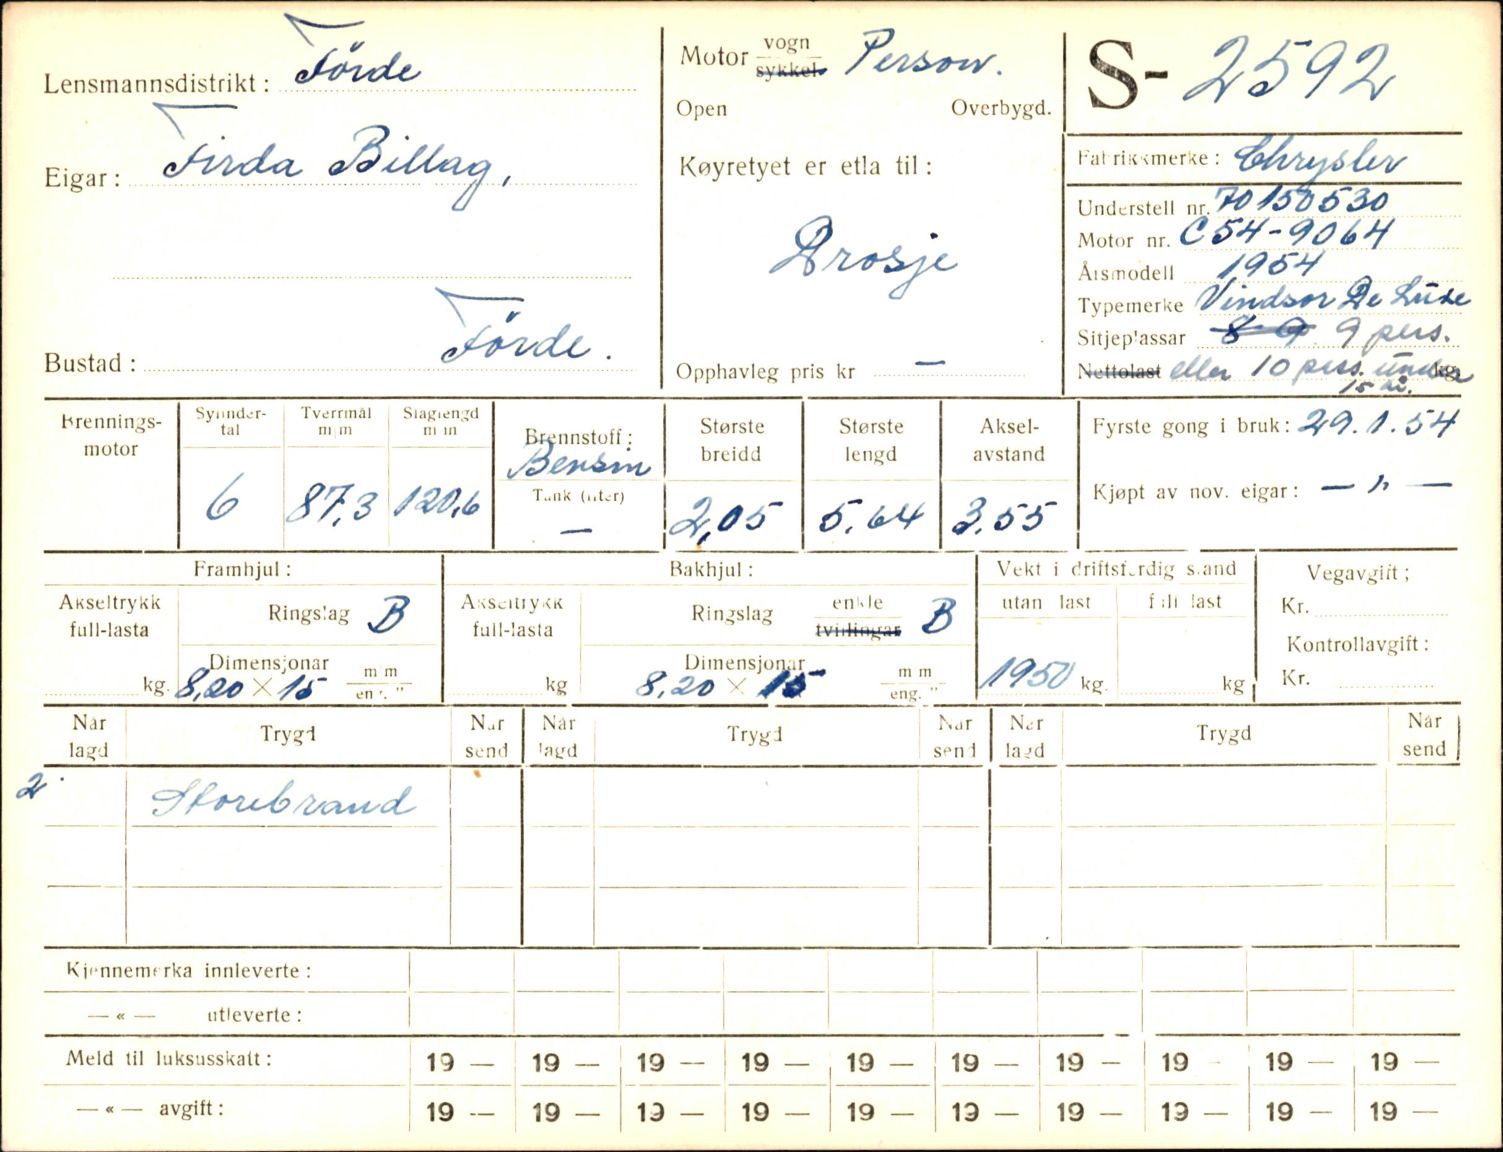 Lensmannsdistrikt: Förde
Motor vogn sykkel Person.
S- 2592
Open Overbygd.
Eigar: Firda Billag,
Køyretyet er etla til:
Drosje
Fabrikkmerke: Chrysler
Understell nr. 70150530
Motor nr. C54-9064
Årsmodell 1954
Typemerke Vindsor De Luxe
Sitjeplassar 8-9 9 pers.
Nettolast eller 10 pers. under kg.
15 år.
Bustad: Förde.
Opphavleg pris kr —
Brennings-
motor
Sylinder-
tal
6
Tverrmål
m/m
87,3
Slaglengd
m/m
120,6
Brennstoff:
Bensin
Tank (liter)
—
Største
breidd
2,05
Største
lengd
5,64
Aksel-
avstand
3,55
Fyrste gong i bruk: 29.1.54
Kjøpt av nov. eigar: — " —
Framhjul:
Akseltrykk
full-lasta
kg.
Ringslag B
Dimensjonar
8,20 × 15 m/m
eng. "
Bakhjul:
Akseltrykk
full-lasta
kg
Ringslag enkle tvillingar B
Dimensjonar
8,20 × 15 m m
eng. "
Vekt i driftsferdig stand
utan last full last
1950 kg. kg
Vegavgift;
Kr.
Kontrollavgift:
Kr.
Når
lagd
Trygd
Når
send
Når
lagd
Trygd
Når
send
Når
lagd
Trygd
Når
send
2 Storebrand
Kjennemerka innleverte:
— « — utleverte:
Meld til luksusskatt: 19 — 19 — 19 — 19 — 19 — 19 — 19 — 19 — 19 — 19 —
— « — avgift: 19 — 19 — 19 — 19 — 19 — 19 — 19 — 19 — 19 — 19 —